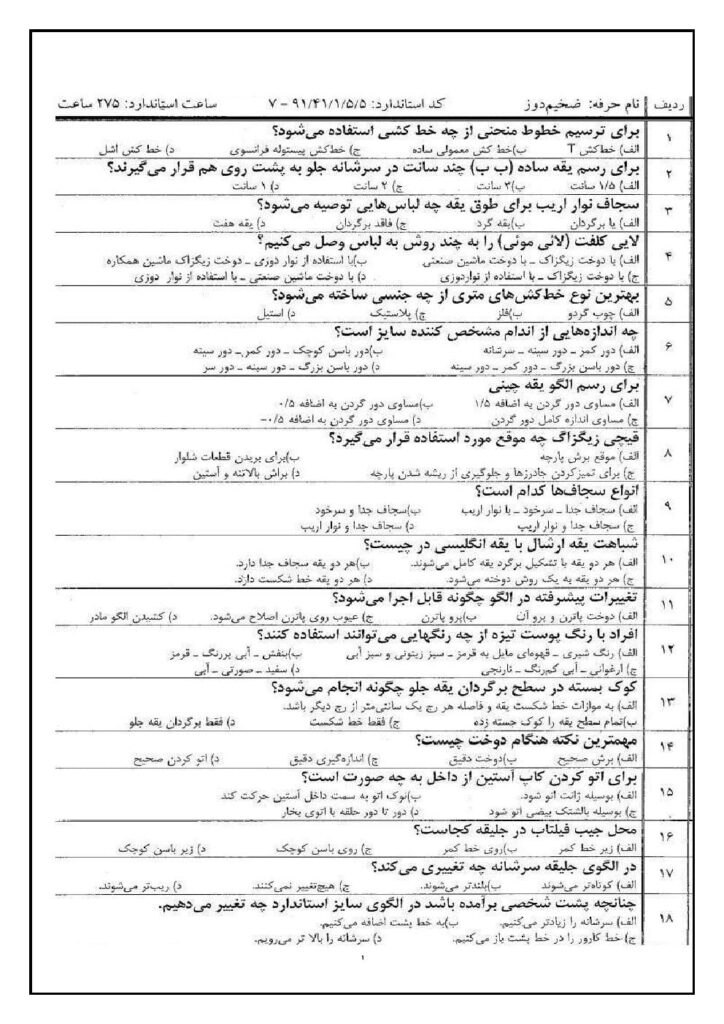 ردیف نام حرفه: ضخیم‌دوز کد استاندارد: ۷ – ۹۱/۴۱/۱/۵/۵ ساعت استاندارد: ۲۷۵ ساعت
۱ برای ترسیم خطوط منحنی از چه خط کشی استفاده می‌شود؟
الف) خط‌کش T ب)خط کش معمولی ساده ج) خط‌کش پیستوله فرانسوی د) خط کش اشل
۲ برای رسم یقه ساده (ب ب) چند سانت در سرشانه جلو به پشت روی هم قرار می‌گیرند؟
الف) ۱/۵ سانت ب)۳ سانت ج) ۲ سانت د) ۱ سانت
۳ سجاف نوار اریب برای طوق یقه چه لباس‌هایی توصیه می‌شود؟
الف) با برگردان ب)یقه گرد ج) فاقد برگردان د) یقه هفت
۴ لایی کلفت (لائی موئی) را به چند روش به لباس وصل می‌کنیم؟
الف) با دوخت زیگزاک ـ با دوخت ماشین صنعتی ب)با استفاده از نوار دوزی ـ دوخت زیگزاک ماشین همکاره
ج) با دوخت زیگزاک ـ با استفاده از نواردوزی د) با دوخت ماشین صنعتی ـ با استفاده از نوار دوزی
۵ بهترین نوع خط‌کش‌های متری از چه جنسی ساخته می‌شود؟
الف) چوب گردو ب)فلز ج) پلاستیک د) استیل
۶ چه اندازه‌هایی از اندام مشخص کننده سایز است؟
الف) دور کمر ـ دور سینه ـ سرشانه ب)دور باسن کوچک ـ دور کمر ـ دور سینه
ج) دور باسن بزرگ ـ دور کمر ـ دور سینه د) دور باسن بزرگ ـ دور سینه ـ دور سر
۷ برای رسم الگو یقه چینی
الف) مساوی دور گردن به اضافه ۱/۵ ب)مساوی دور گردن به اضافه ۰/۵
ج) مساوی اندازه کامل دور گردن د) مساوی دور گردن به اضافه ۰/۵–
۸ قیچی زیگزاگ چه موقع مورد استفاده قرار می‌گیرد؟
الف) موقع برش پارچه ب)برای بریدن قطعات شلوار
ج) برای تمیزکردن جادرزها و جلوگیری از ریشه شدن پارچه د) براش بالاتنه و آستین
۹ انواع سجاف‌ها کدام است؟
الف) سجاف جدا ـ سرخود ـ با نوار اریب ب)سجاف جدا و سرخود
ج) سجاف جدا و نوار اریپ د) سجاف جدا و نوار اریب
۱۰ شباهت یقه ارشال با یقه انگلیسی در چیست؟
الف) هر دو یقه با تشکیل برگرد یقه کامل می‌شوند. ب)هر دو یقه سجاف جدا دارد.
ج) هر دو یقه به یک روش دوخته می‌شود. د) هر دو یقه خط شکست دارد.
۱۱ تغییرات پیشرفته در الگو چگونه قابل اجرا می‌شود؟
الف) دوخت پاترن و پرو آن ب)پرو پاترن ج) عیوب روی پاترن اصلاح می‌شود. د) کشیدن الگو مادر
۱۲ افراد با رنگ پوست تیزه از چه رنگهایی می‌توانند استفاده کنند؟
الف) رنگ شیری ـ قهوه‌ای مایل به قرمز ـ سبز زیتونی و سبز آبی ب)بنفش ـ آبی پررنگ ـ قرمز
ج) ارغوانی ـ آبی کم‌رنگ ـ نارنجی د) سفید ـ صورتی ـ آبی
۱۳ کوک بسته در سطح برگردان یقه جلو چگونه انجام می‌شود؟
الف) به موازات خط شکست یقه و فاصله هر رج یک سانتی‌متر از رج دیگر باشد.
ب)تمام سطح یقه را کوک جسته زده ج) فقط خط شکست د) فقط برگردان یقه جلو
۱۴ مهمترین نکته هنگام دوخت چیست؟
الف) برش صحیح ب)دوخت دقیق ج) اندازه‌گیری دقیق د) اتو کردن صحیح
۱۵ برای اتو کردن کاپ آستین از داخل به چه صورت است؟
الف) بوسیله ژانت اتو شود. ب)نوک اتو به سمت داخل آستین حرکت کند
ج) بوسیله بالشتک بیضی اتو شود د) دور تا دور حلقه با اتوی بخار
۱۶ محل جیب فیلتاب در جلیقه کجاست؟
الف) زیر خط کمر ب)روی خط کمر ج) روی باسن کوچک د) زیر باسن کوچک
۱۷ در الگوی جلیقه سرشانه چه تغییری می‌کند؟
الف) کوتاه‌تر می‌شوند ب)بلندتر می‌شوند. ج) هیچ‌تغییر نمی‌کنند. د) ریب‌تر می‌شوند.
۱۸ چنانچه پشت شخصی برآمده باشد در الگوی سایز استاندارد چه تغییر می‌دهیم.
الف) سرشانه را زیادتر می‌کنیم. ب)به خط پشت اضافه می‌کنیم.
ج) خط کارور را در خط پشت باز می‌کنیم. د) سرشانه را بالا تر می‌رویم.
۱